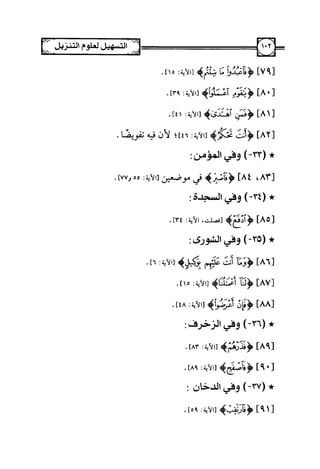 ١٠٢ التسهيل لعلوم التنزيل
[٧٩] ﴿فَاعْبُدُوا مَا شِئْتُم﴾ [الآية: ١٥].
[٨٠] ﴿يَٰقَوْمِ اعْمَلُوا﴾ [الآية: ٣٩].
[٨١] ﴿فَمَنِ اهْتَدَىٰ﴾ [الآية: ٤١].
[٨٢] ﴿أَنتَ تَحْكُمُ﴾ [الآية: ٤٦]؛ لأن فيه تفويضًا.
★ (٣٣-) وفي المؤمن:
[٨٣، ٨٤] ﴿فَاصْبِرْ﴾ في موضعين [الآية: ٥٥ و٧٧].
★ (٣٤-) وفي السجدة:
[٨٥] ﴿ادْفَعْ﴾ [فصلت، الآية: ٣٤].
★ (٣٥-) وفي الشورى:
[٨٦] ﴿وَمَا أَنتَ عَلَيْهِم بِوَكِيلٍ﴾ [الآية: ٦].
[٨٧] ﴿لَنَا أَعْمَٰلُنَا﴾ [الآية: ١٥].
[٨٨] ﴿فَإِنْ أَعْرَضُوا﴾ [الآية: ٤٨].
★ (٣٦-) وفي الزخرف:
[٨٩] ﴿فَذَرْهُمْ﴾ [الآية: ٨٣].
[٩٠] ﴿فَاصْفَحْ﴾ [الآية: ٨٩].
★ (٣٧-) وفي الدخان :
[٩١] ﴿فَارْتَقِبْ﴾ [الآية: ٥٩].